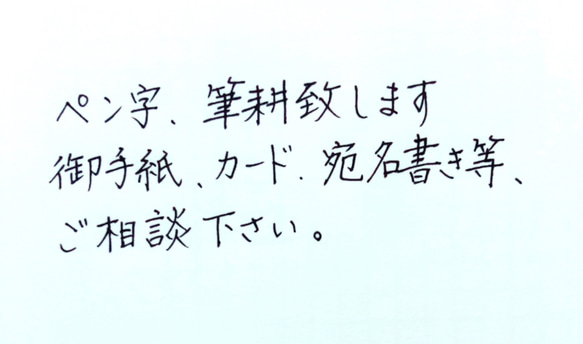 ペン字、筆耕致します
御手紙、カード、宛名書き等、
ご相談下さい。